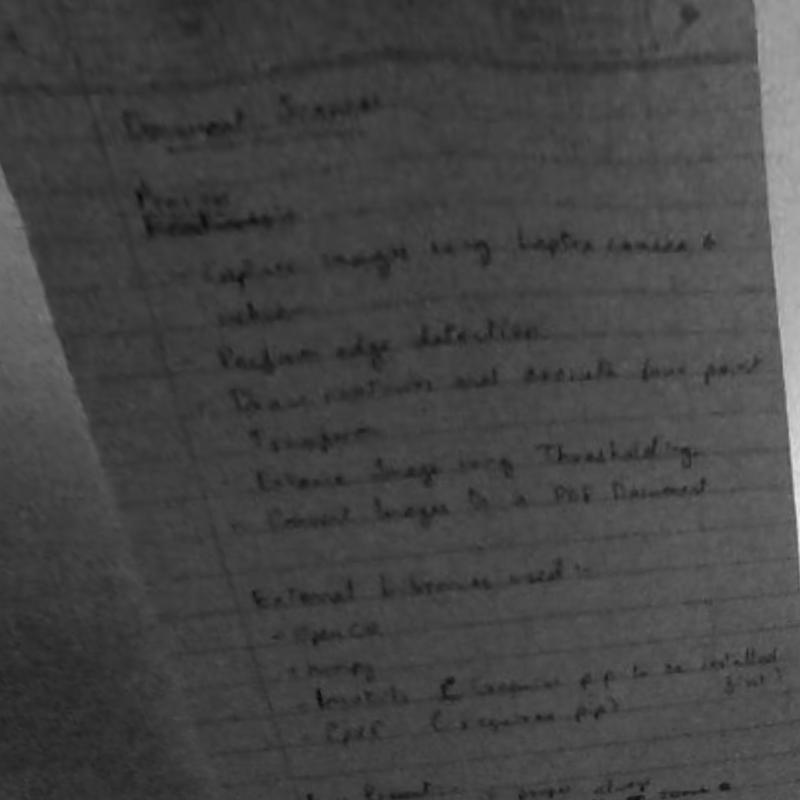 Document Scanner
Process
- Capture images using laptop camera &
- Perform edge detection
- Draw contours and execute four point
Transform
- Enhance Image using Thresholding
- Convert Images to a PDF Document
External Libraries used :-
- OpenCV
- numpy
- imutils (requires pip to be installed
first)
- (requires pip)